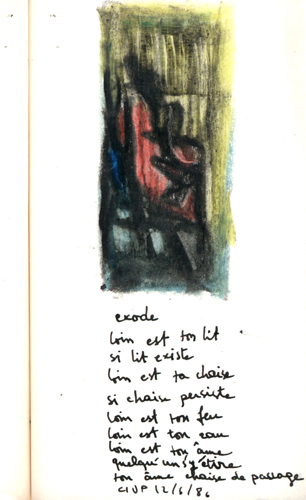 exode
loin est ton lit
si lit existe
loin est ta chaise
si chaise persiste
loin est ton feu
loin est ton eau
loin est ton âme
quelqu'un s'y étire
ton âme chaise de passage
CIUP 12/6/86